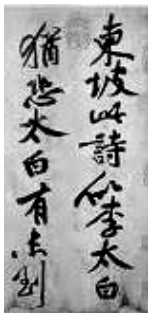 東坡此詩似李太白
猶恐太白有未到